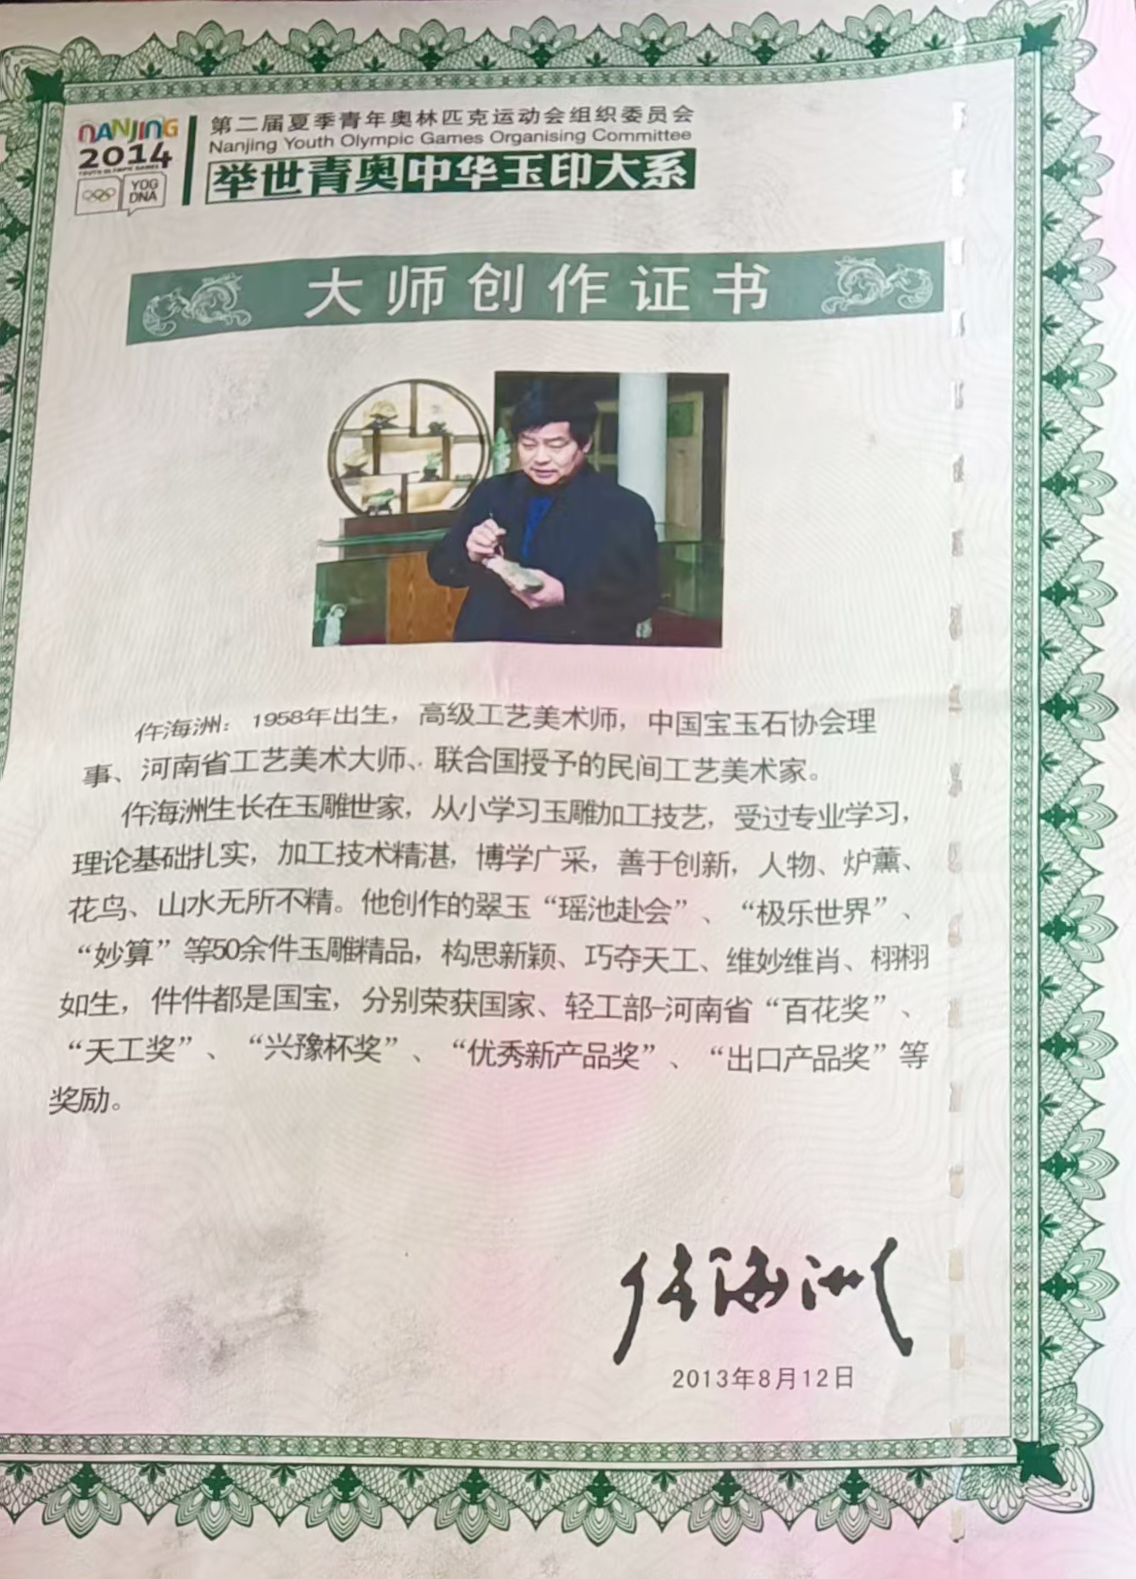 NANJING
2014
YOUTH OLYMPIC GAMES
YOG
DNA
第二届夏季青年奥林匹克运动会组织委员会
Nanjing Youth Olympic Games Organising Committee
举世青奥中华玉印大系
大师创作证书
仵海洲：1958年出生，高级工艺美术师，中国宝玉石协会理
事、河南省工艺美术大师、联合国授予的民间工艺美术家。
仵海洲生长在玉雕世家，从小学习玉雕加工技艺，受过专业学习，
理论基础扎实，加工技术精湛，博学广采，善于创新，人物、炉薰、
花鸟、山水无所不精。他创作的翠玉“瑶池赴会”、“极乐世界”、
“妙算”等50余件玉雕精品，构思新颖、巧夺天工、维妙维肖、栩栩
如生，件件都是国宝，分别荣获国家、轻工部-河南省“百花奖”、
“天工奖”、“兴豫杯奖”、“优秀新产品奖”、“出口产品奖”等
奖励。
仵海洲
2013年8月12日